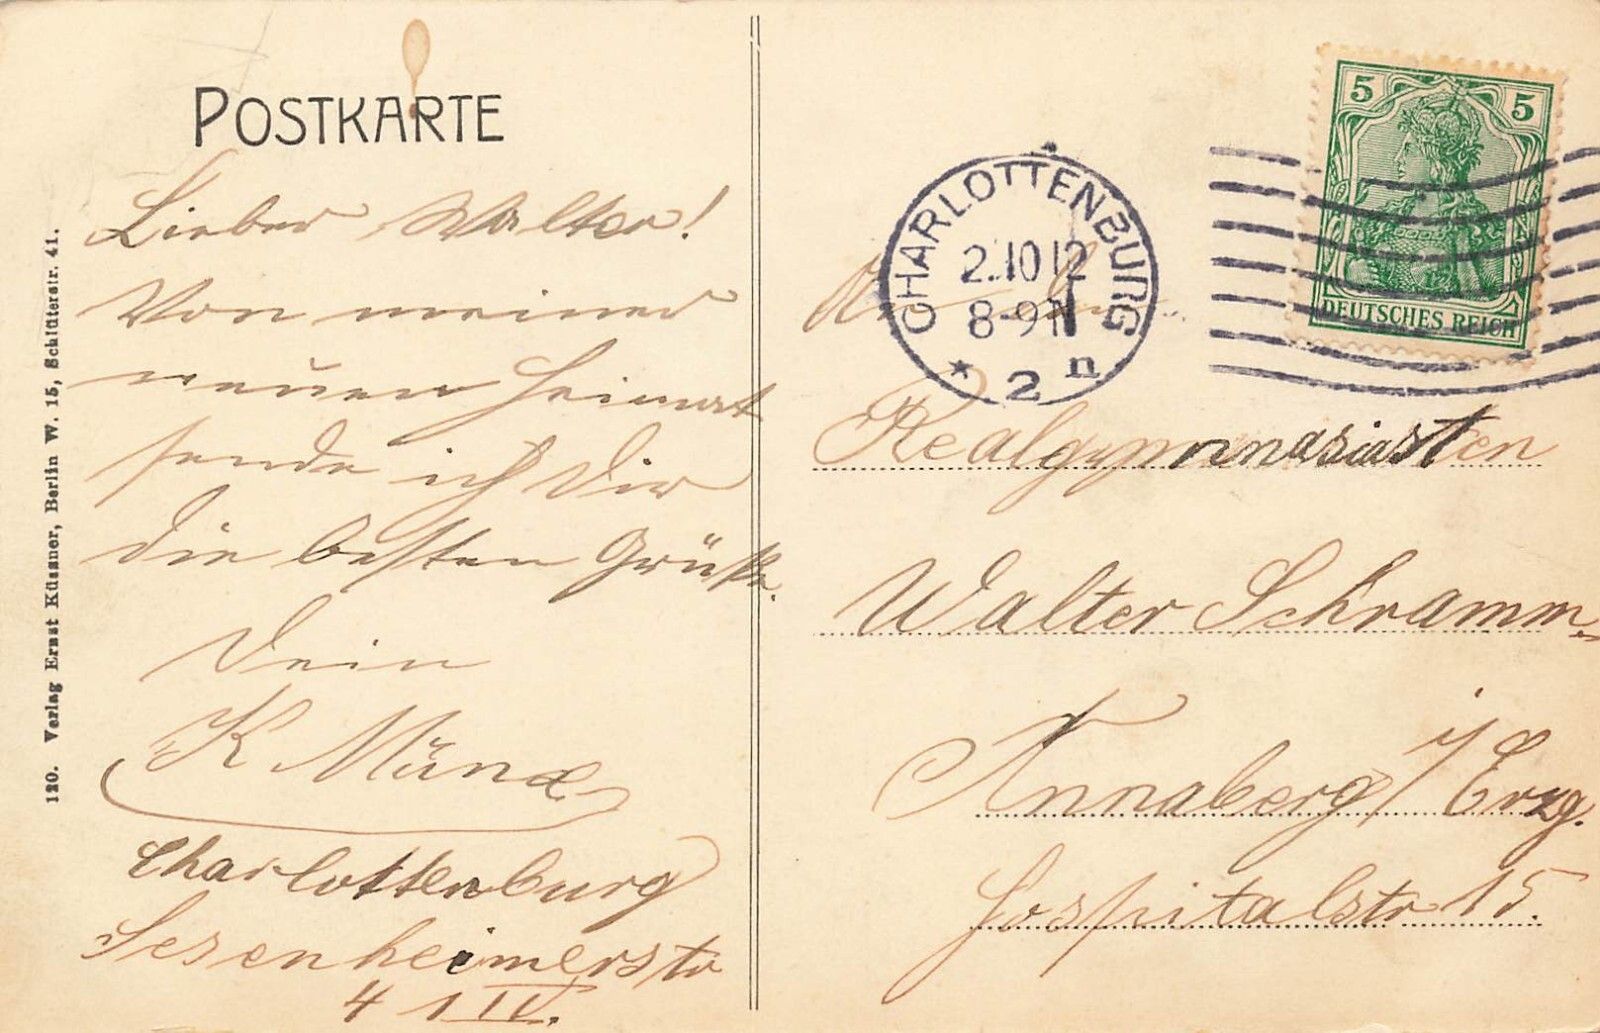 POSTKARTE
Lieber Walter!
Von meiner
neuen Heimat
sende ich Dir
die besten Grüße.
Dein
K
Charlottenburg
Sesenheimerstr
4 I IV.
120. Verlag Ernst Küssner, Berlin W. 15, Schlüterstr. 41.
5 5
DEUTSCHES REICH
CHARLOTTENBURG
2.10 12
8-9 N
* 2 n
An den
Realgymnasiasten
Walter Schramm.
Annaberg i/Erzg.
Hospitalstr 15.